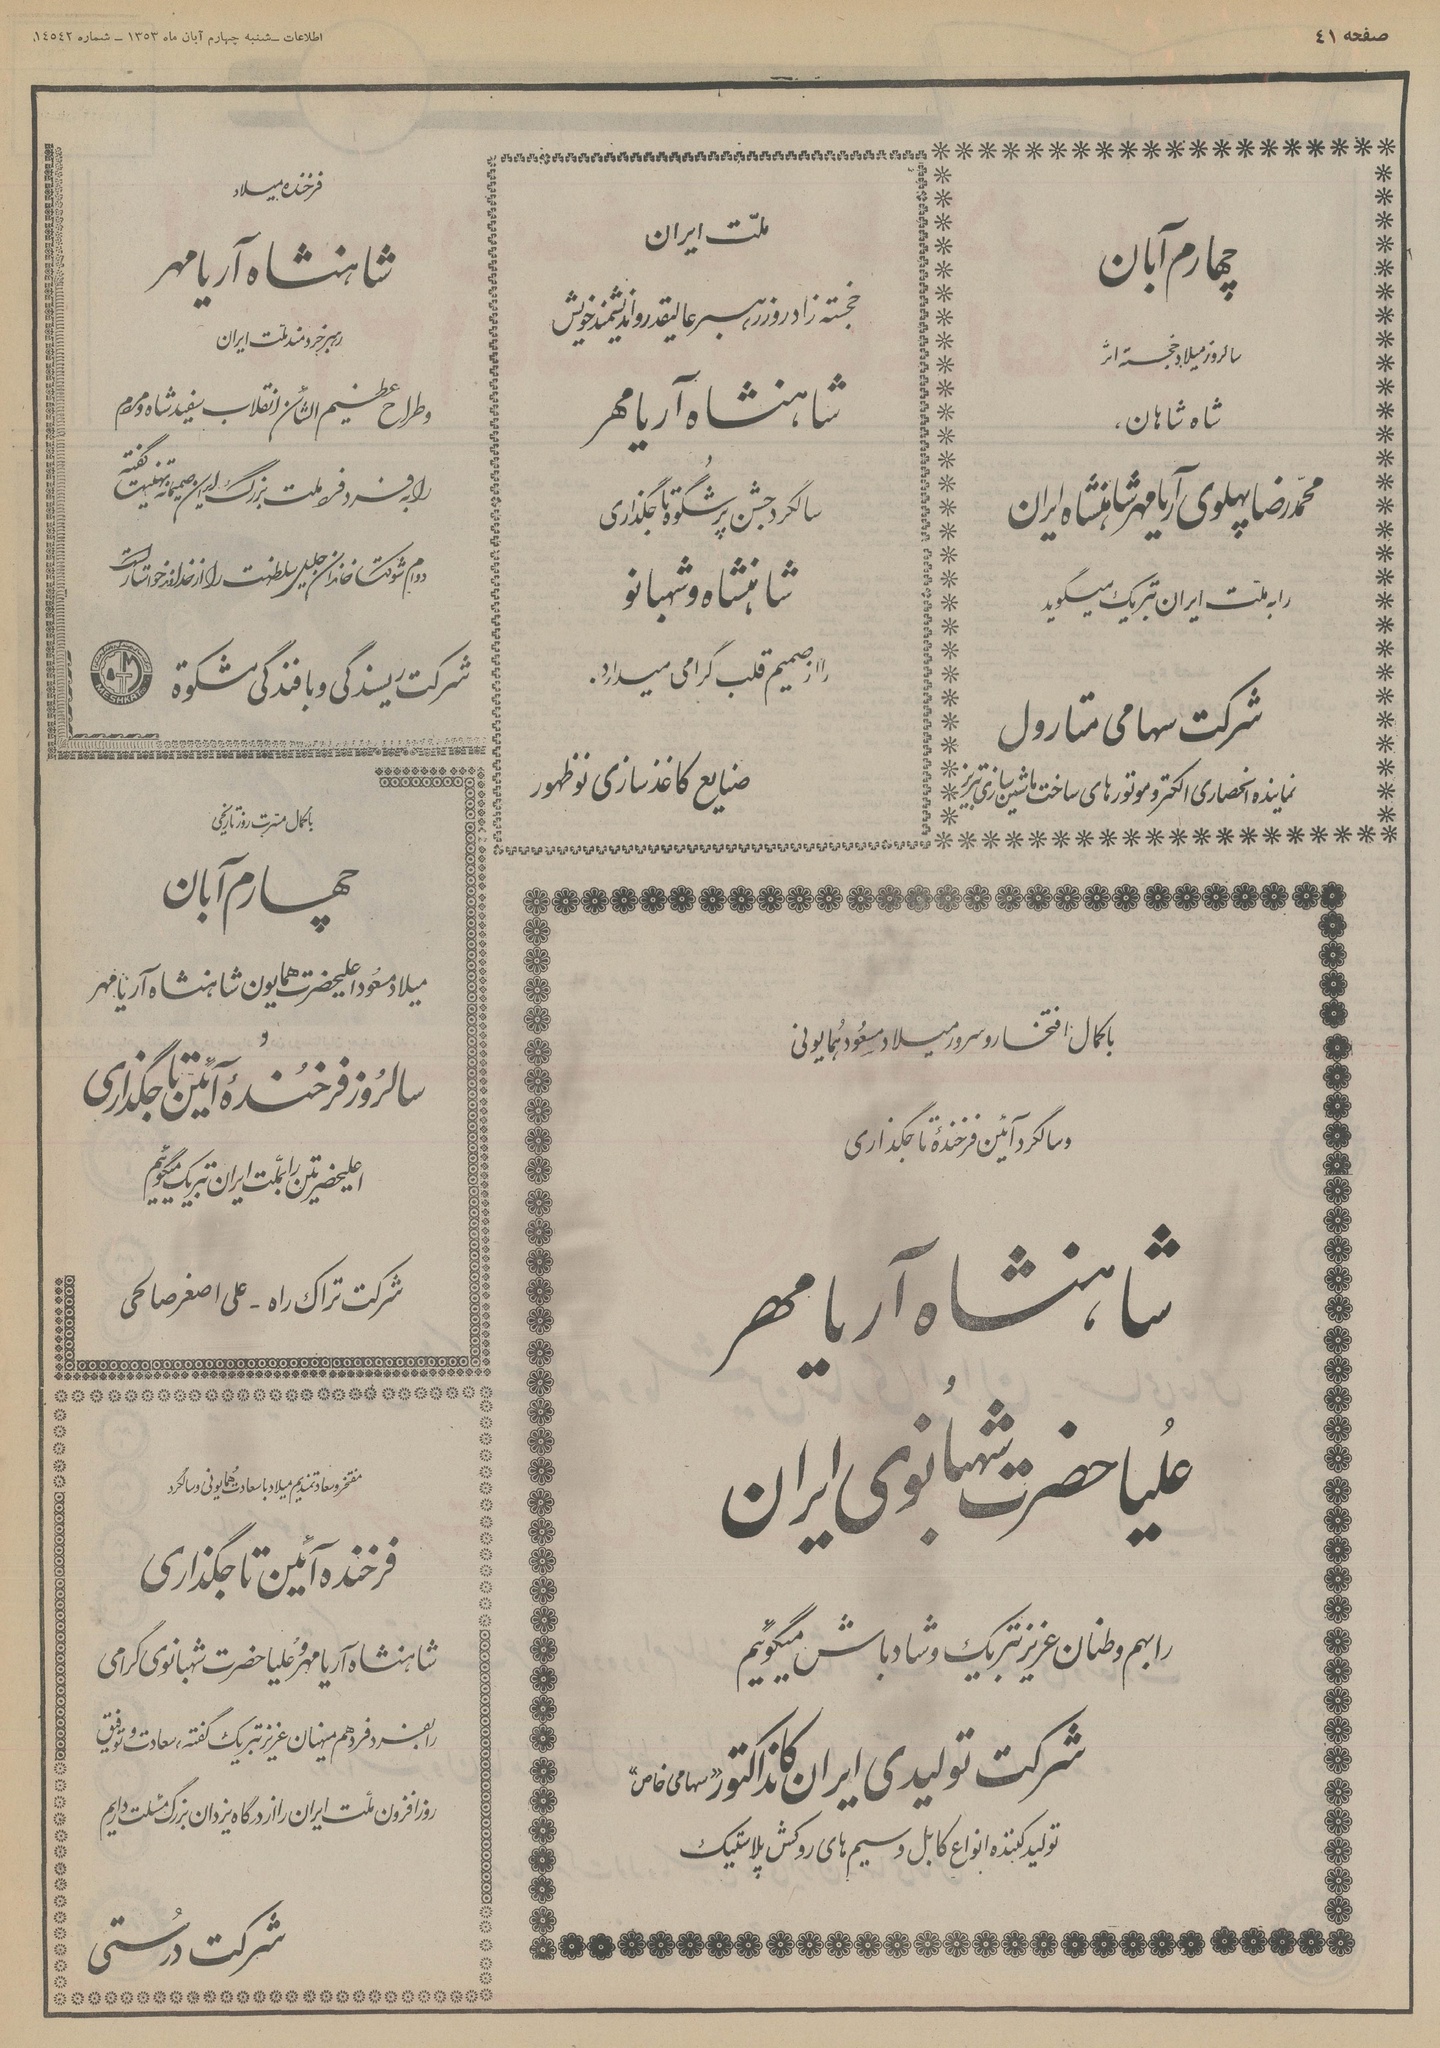 صفحه ٤١
اطلاعات ــ شنبه چهارم آبان ماه ١٣٥٣ ــ شماره ١٤٥٤٢
چهارم آبان
سالروز میلاد خجسته اثر
شاه شاهان،
محمدرضا پهلوی آریامهر شاهنشاه ایران
را به ملت ایران تبریک میگوید
شرکت سهامی متارول
نماینده انحصاری الکتروموتورهای ساخت ماشین سازی تبریز
ملت ایران
خجسته زادروز رهبر عالیقدر و اندیشمند خویش
شاهنشاه آریامهر
و
سالگرد جشن پرشکوه تاجگذاری
شاهنشاه و شهبانو
را از صمیم قلب گرامی میدارد.
صنایع کاغذسازی نوظهور
فرخنده میلاد
شاهنشاه آریامهر
رهبر خردمند ملت ایران
و طراح عظیم الشان انقلاب سفید شاه و مردم
را به فرد فرد ملت بزرگ ایران صمیمانه تهنیت گفته
دوام شوکت خاندان جلیل سلطنت را از خداوند خواستار است
شرکت ریسندگی و بافندگی مشکوة
MESHKAT
با کمال مسرت روز تاریخی
چهارم آبان
میلاد مسعود اعلیحضرت همایون شاهنشاه آریامهر
و
سالروز فرخندهٔ آئین تاجگذاری
اعلیحضرتین را بملت ایران تبریک میگوئیم
شرکت تراک راه ــ علی اصغر صالحی
با کمال افتخار و سرور میلاد مسعود همایونی
و سالگرد آئین فرخندهٔ تاجگذاری
شاهنشاه آریامهر
و
علیاحضرت شهبانوی ایران
را بهم وطنان عزیز تبریک و شادباش میگوئیم
شرکت تولیدی ایران کانداکتور «سهامی خاص»
تولید کننده انواع کابل و سیم های روکش پلاستیک
مفتخر و سعادتمندیم میلاد با سعادت همایونی و سالگرد
فرخنده آئین تاجگذاری
شاهنشاه آریامهر و علیاحضرت شهبانوی گرامی
را بفرد فرد هم میهنان عزیز تبریک گفته، سعادت و توفیق
روزافزون ملت ایران را از درگاه یزدان بزرگ مسئلت داریم
شرکت درستی